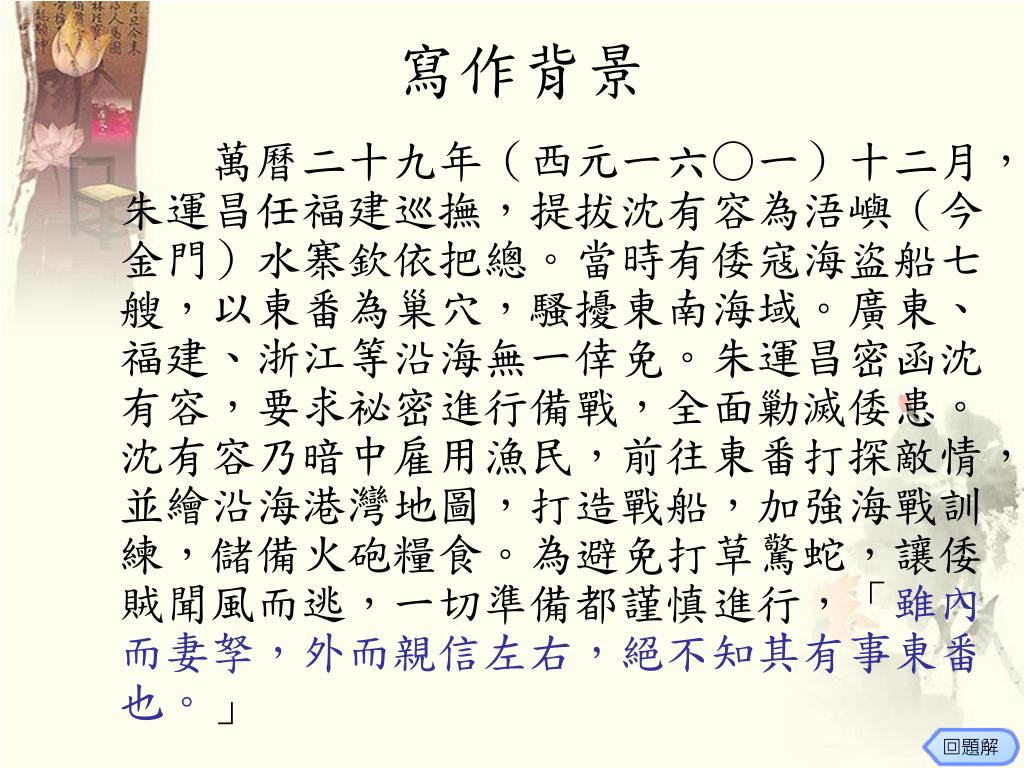 寫作背景
萬曆二十九年（西元一六〇一）十二月，
朱運昌任福建巡撫，提拔沈有容為浯嶼（今
金門）水寨欽依把總。當時有倭寇海盜船七
艘，以東番為巢穴，騷擾東南海域。廣東、
福建、浙江等沿海無一倖免。朱運昌密函沈
有容，要求祕密進行備戰，全面勦滅倭患。
沈有容乃暗中雇用漁民，前往東番打探敵情，
並繪沿海港灣地圖，打造戰船，加強海戰訓
練，儲備火砲糧食。為避免打草驚蛇，讓倭
賊聞風而逃，一切準備都謹慎進行，「雖內
而妻孥，外而親信左右，絕不知其有事東番
也。」
回題解